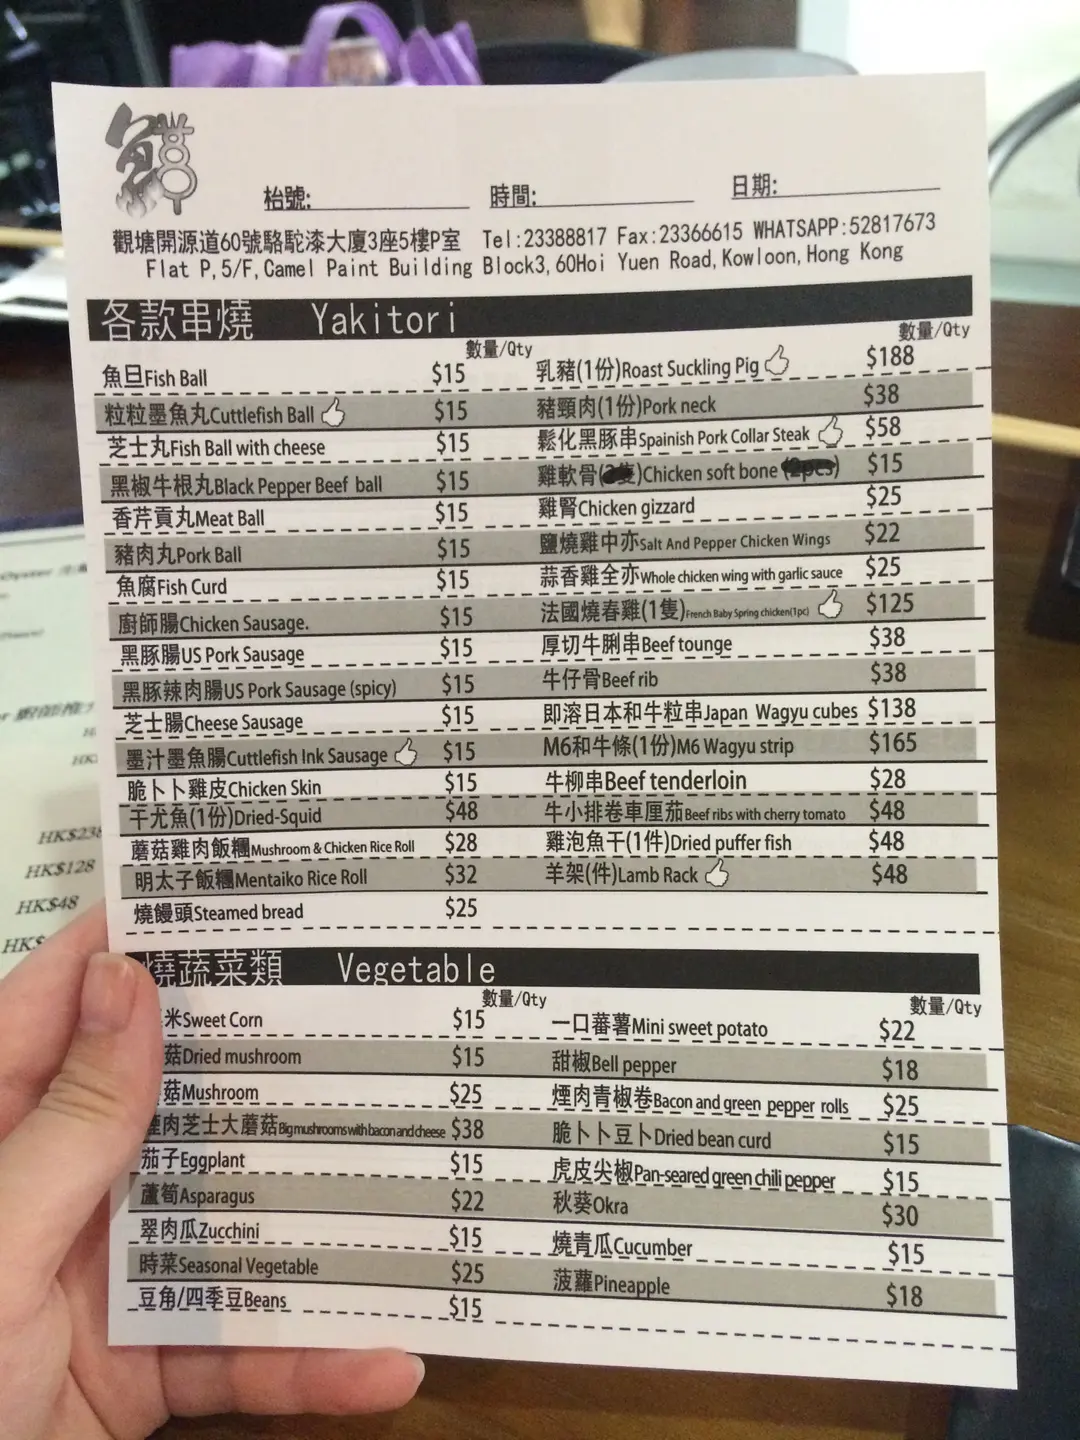 鮮
枱號:
時間:
日期:
觀塘開源道60號駱駝漆大廈3座5樓P室 Tel:23388817 Fax:23366615 WHATSAPP:52817673
Flat P,5/F,Camel Paint Building Block3,60Hoi Yuen Road,Kowloon,Hong Kong
各款串燒 Yakitori
數量/Qty
魚旦Fish Ball $15
粒粒墨魚丸Cuttlefish Ball $15
芝士丸Fish Ball with cheese $15
黑椒牛根丸Black Pepper Beef ball $15
香芹貢丸Meat Ball $15
豬肉丸Pork Ball $15
魚腐Fish Curd $15
廚師腸Chicken Sausage. $15
黑豚腸US Pork Sausage $15
黑豚辣肉腸US Pork Sausage (spicy) $15
芝士腸Cheese Sausage $15
墨汁墨魚腸Cuttlefish Ink Sausage $15
脆卜卜雞皮Chicken Skin $15
干尤魚(1份)Dried-Squid $48
蘑菇雞肉飯糰Mushroom & Chicken Rice Roll $28
明太子飯糰Mentaiko Rice Roll $32
燒饅頭Steamed bread $25
數量/Qty
乳豬(1份)Roast Suckling Pig $188
豬頸肉(1份)Pork neck $38
鬆化黑豚串Spainish Pork Collar Steak $58
雞軟骨(2隻)Chicken soft bone (2pcs) $15
雞腎Chicken gizzard $25
鹽燒雞中亦Salt And Pepper Chicken Wings $22
蒜香雞全亦Whole chicken wing with garlic sauce $25
法國燒春雞(1隻)French Baby Spring chicken(1pc) $125
厚切牛脷串Beef tounge $38
牛仔骨Beef rib $38
即溶日本和牛粒串Japan Wagyu cubes $138
M6和牛條(1份)M6 Wagyu strip $165
牛柳串Beef tenderloin $28
牛小排卷車厘茄Beef ribs with cherry tomato $48
雞泡魚干(1件)Dried puffer fish $48
羊架(件)Lamb Rack $48
燒蔬菜類 Vegetable
數量/Qty
米Sweet Corn $15
菇Dried mushroom $15
菇Mushroom $25
煙肉芝士大蘑菇Big mushrooms with bacon and cheese $38
茄子Eggplant $15
蘆筍Asparagus $22
翠肉瓜Zucchini $15
時菜Seasonal Vegetable $25
豆角/四季豆Beans $15
數量/Qty
一口蕃薯Mini sweet potato $22
甜椒Bell pepper $18
煙肉青椒卷Bacon and green pepper rolls $25
脆卜卜豆卜Dried bean curd $15
虎皮尖椒Pan-seared green chili pepper $15
秋葵Okra $30
燒青瓜Cucumber $15
菠蘿Pineapple $18
HK$238
HK$128
HK$48